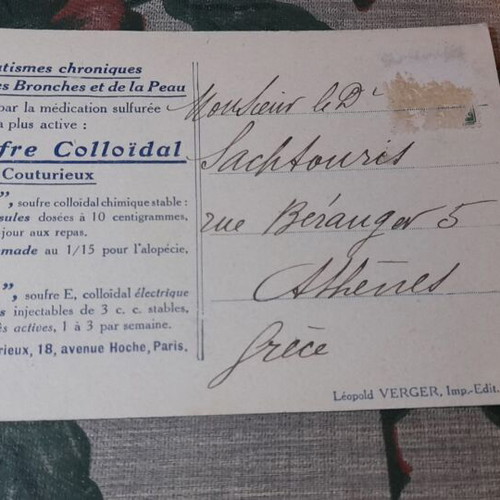 atismes chroniques
es Bronches et de la Peau
par la médication sulfurée
a plus active :
fre Colloïdal
Couturieux
", soufre colloïdal chimique stable :
sules dosées à 10 centigrammes,
jour aux repas.
made au 1/15 pour l'alopécie.
", soufre E, colloïdal électrique
s injectables de 3 c. c. stables,
ès actives, 1 à 3 par semaine.
rieux, 18, avenue Hoche, Paris.
Monsieur le Dr
Sachtouris
rue Béranger 5
Athènes
Grèce
Léopold VERGER, Imp.-Edit.